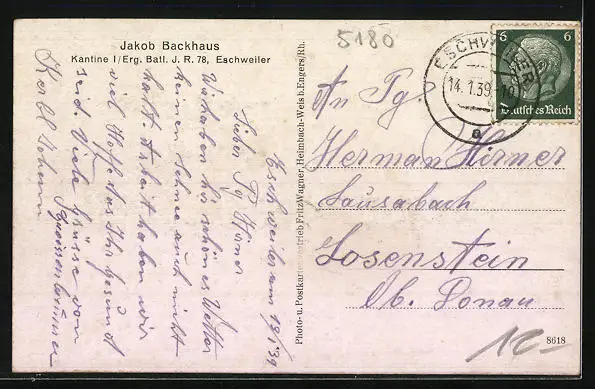 Jakob Backhaus
Kantine I/Erg. Batl. J. R. 78, Eschweiler
5180
ESCHWEILER
14.1.39
a
6 6
Deutsches Reich
Eschweiler am 13.1.39
Lieber Pg Hörner
Wir haben hier schönes Wetter
keinen Schnee auch nicht
kalt. Arbeit haben wir
viel Hoffe das Ihr gesund
seid. Viele Grüsse von
Karl Johann
Photo- u. Postkartenvertrieb Fritz Wagner, Heimbach-Weis b. Engers/Rh.
An Pg.
Herman Hörner
Losenstein
Ob. Donau
8618